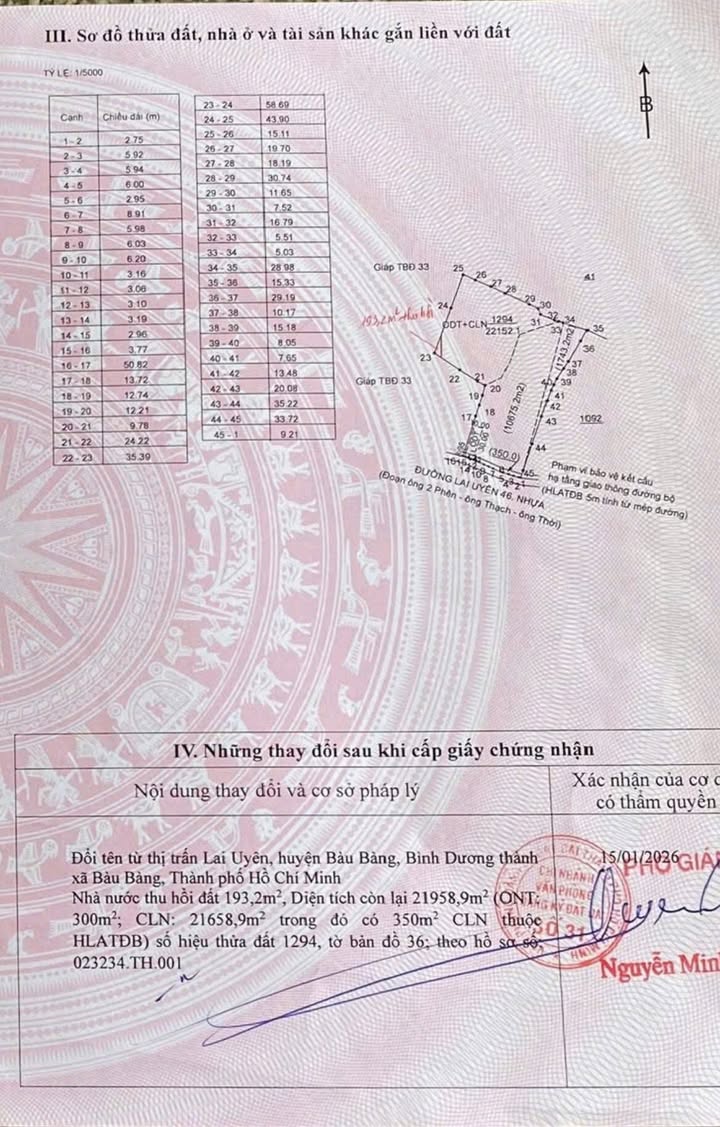 III. Sơ đồ thửa đất, nhà ở và tài sản khác gắn liền với đất
TỶ LỆ: 1/5000
Cạnh Chiều dài (m)
1 - 2 2.75
2 - 3 5.92
3 - 4 5.94
4 - 5 6.00
5 - 6 2.95
6 - 7 8.91
7 - 8 5.98
8 - 9 6.03
9 - 10 6.20
10 - 11 3.16
11 - 12 3.06
12 - 13 3.10
13 - 14 3.19
14 - 15 2.96
15 - 16 3.77
16 - 17 50.82
17 - 18 13.72
18 - 19 12.74
19 - 20 12.21
20 - 21 9.78
21 - 22 24.22
22 - 23 35.39
23 - 24 58.69
24 - 25 43.90
25 - 26 15.11
26 - 27 19.70
27 - 28 18.19
28 - 29 30.74
29 - 30 11.65
30 - 31 7.52
31 - 32 16.79
32 - 33 5.51
33 - 34 5.03
34 - 35 28.98
35 - 36 15.33
36 - 37 29.19
37 - 38 10.17
38 - 39 15.18
39 - 40 8.05
40 - 41 7.65
41 - 42 13.48
42 - 43 20.08
43 - 44 35.22
44 - 45 33.72
45 - 1 9.21
B
Giáp TBĐ 33
25
26
27
28
29
30
41
24
193,2m² thu hồi
ODT+CLN 1294
22152.1
31
32
33
34
35
36
(1743.2m2)
37
38
23
22
21
20
40
39
Giáp TBĐ 33
19
41
42
18
(10675.2m2)
43
1092
17
44
(350.0)
45
Phạm vi bảo vệ kết cấu
hạ tầng giao thông đường bộ
(HLATĐB 5m tính từ mép đường)
ĐƯỜNG LAI UYÊN 46, NHỰA
(Đoạn ông 2 Phên - ông Thạch - ông Thới)
IV. Những thay đổi sau khi cấp giấy chứng nhận
Nội dung thay đổi và cơ sở pháp lý
Xác nhận của cơ
có thẩm quyền
Đổi tên từ thị trấn Lai Uyên, huyện Bàu Bàng, Bình Dương thành
xã Bàu Bàng, Thành phố Hồ Chí Minh
Nhà nước thu hồi đất 193,2m², Diện tích còn lại 21958,9m² (ONT:
300m²; CLN: 21658,9m² trong đó có 350m² CLN thuộc
HLATĐB) số hiệu thửa đất 1294, tờ bản đồ 36; theo hồ sơ số:
023234.TH.001
15/01/2026
PHÓ GIÁ
CHI NHÁNH
VĂN PHÒNG
SỐ 31
Nguyễn Min